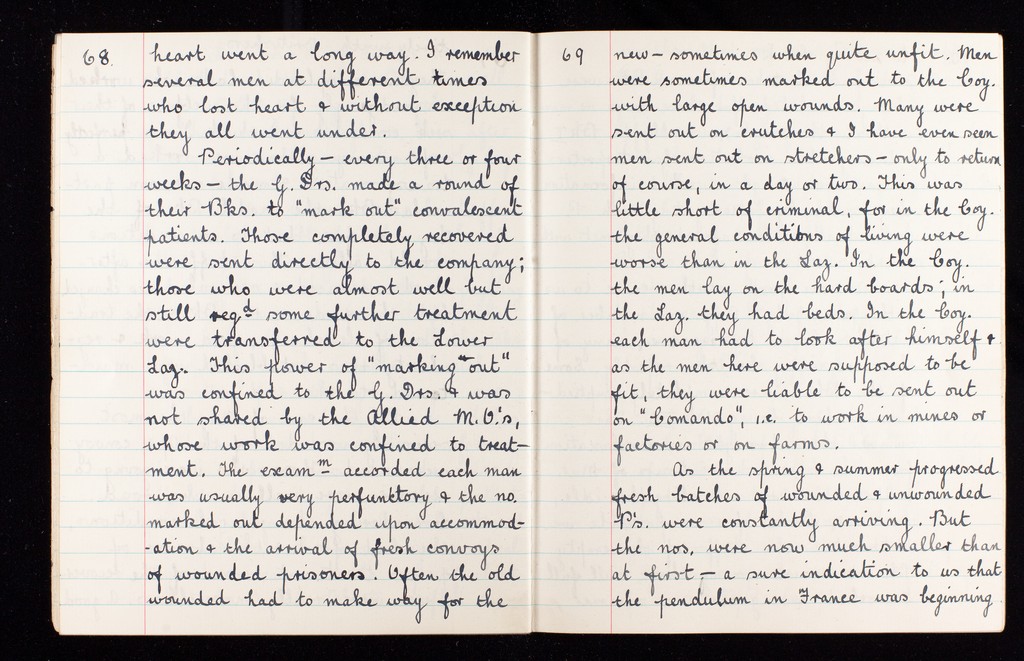 68.
heart went a long way. I remember
several men at different times
who lost heart & without exception
they all went under.
Periodically – every three or four
weeks – the G. Drs. made a round of
their Bks. to "mark out" convalescent
patients. Those completely recovered
were sent directly to the company;
those who were almost well but
still reqd some further treatment
were transferred to the Lower
Laz. This power of "marking out"
was confined to the G. Drs. & was
not shared by the Allied M.O.'s,
whose work was confined to treat-
ment. The examn accorded each man
was usually very perfunttory & the no.
marked out depended upon accommod-
-ation & the arrival of fresh convoys
of wounded prisoners. Often the old
wounded had to make way for the
69
new – sometimes when quite unfit. Men
were sometimes marked out to the Coy.
with large open wounds. Many were
sent out on crutches & I have even seen
men sent out on stretchers – only to return
of course, in a day or two. This was
little short of criminal, for in the Coy.
the general conditions of living were
worse than in the Laz. In the Coy.
the men lay on the hard boards; in
the Laz. they had beds. In the Coy.
each man had to look after himself &
as the men here were supposed to be
fit, they were liable to be sent out
on "Comando", i.e. to work in mines or
factories or on farms.
As the spring & summer progressed
fresh batches of wounded & unwounded
P's. were constantly arriving. But
the nos. were now much smaller than
at first – a sure indication to us that
the pendulum in France was beginning